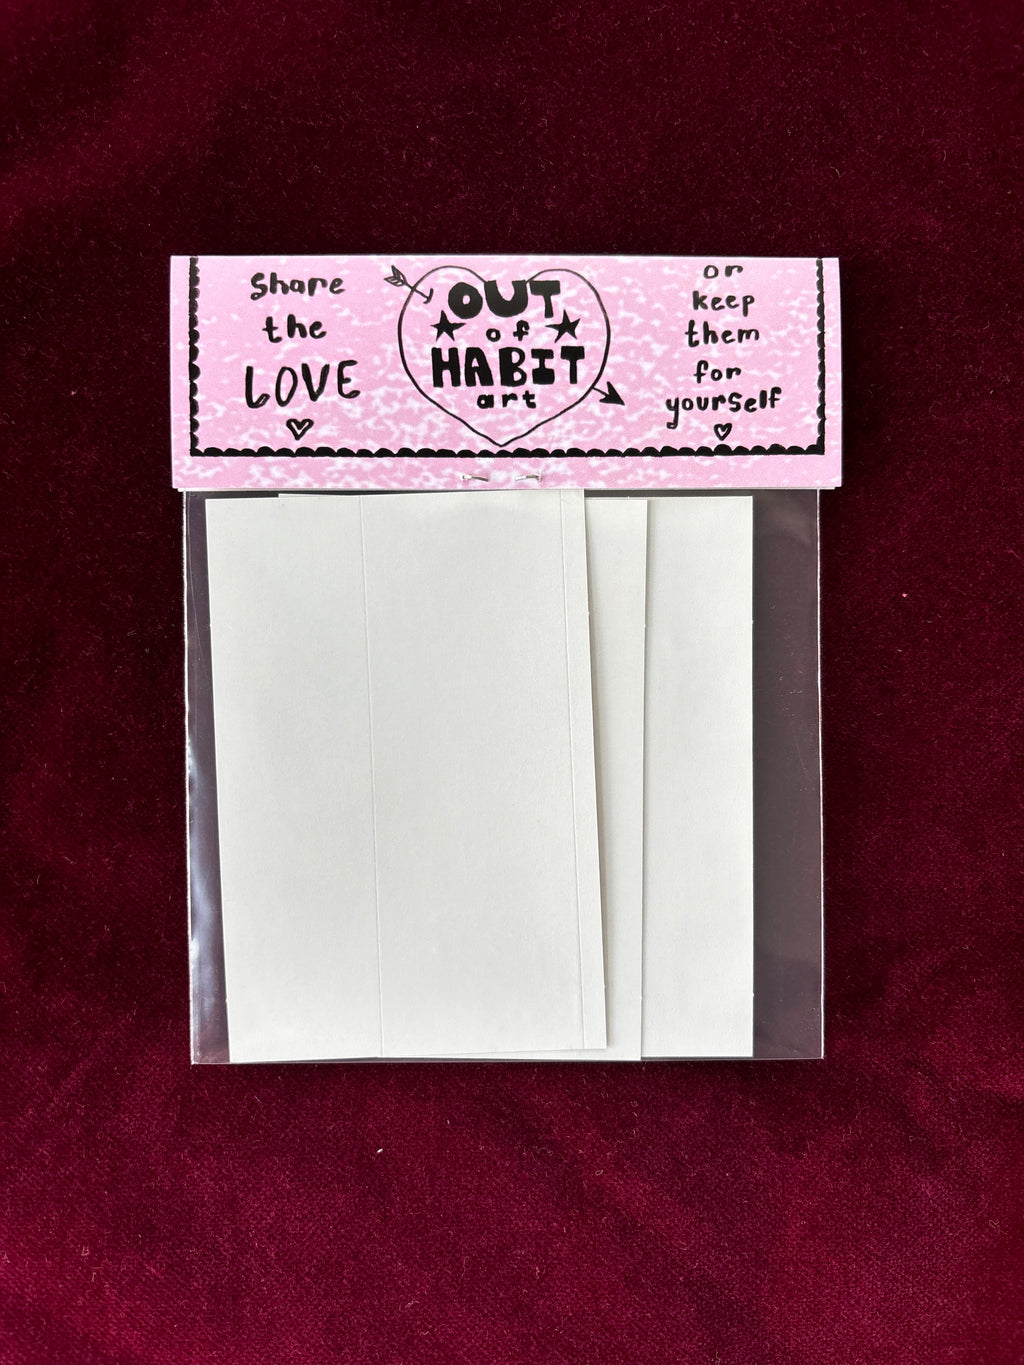 Share
the
LOVE
OUT
of
HABIT
art
or
keep
them
for
yourself